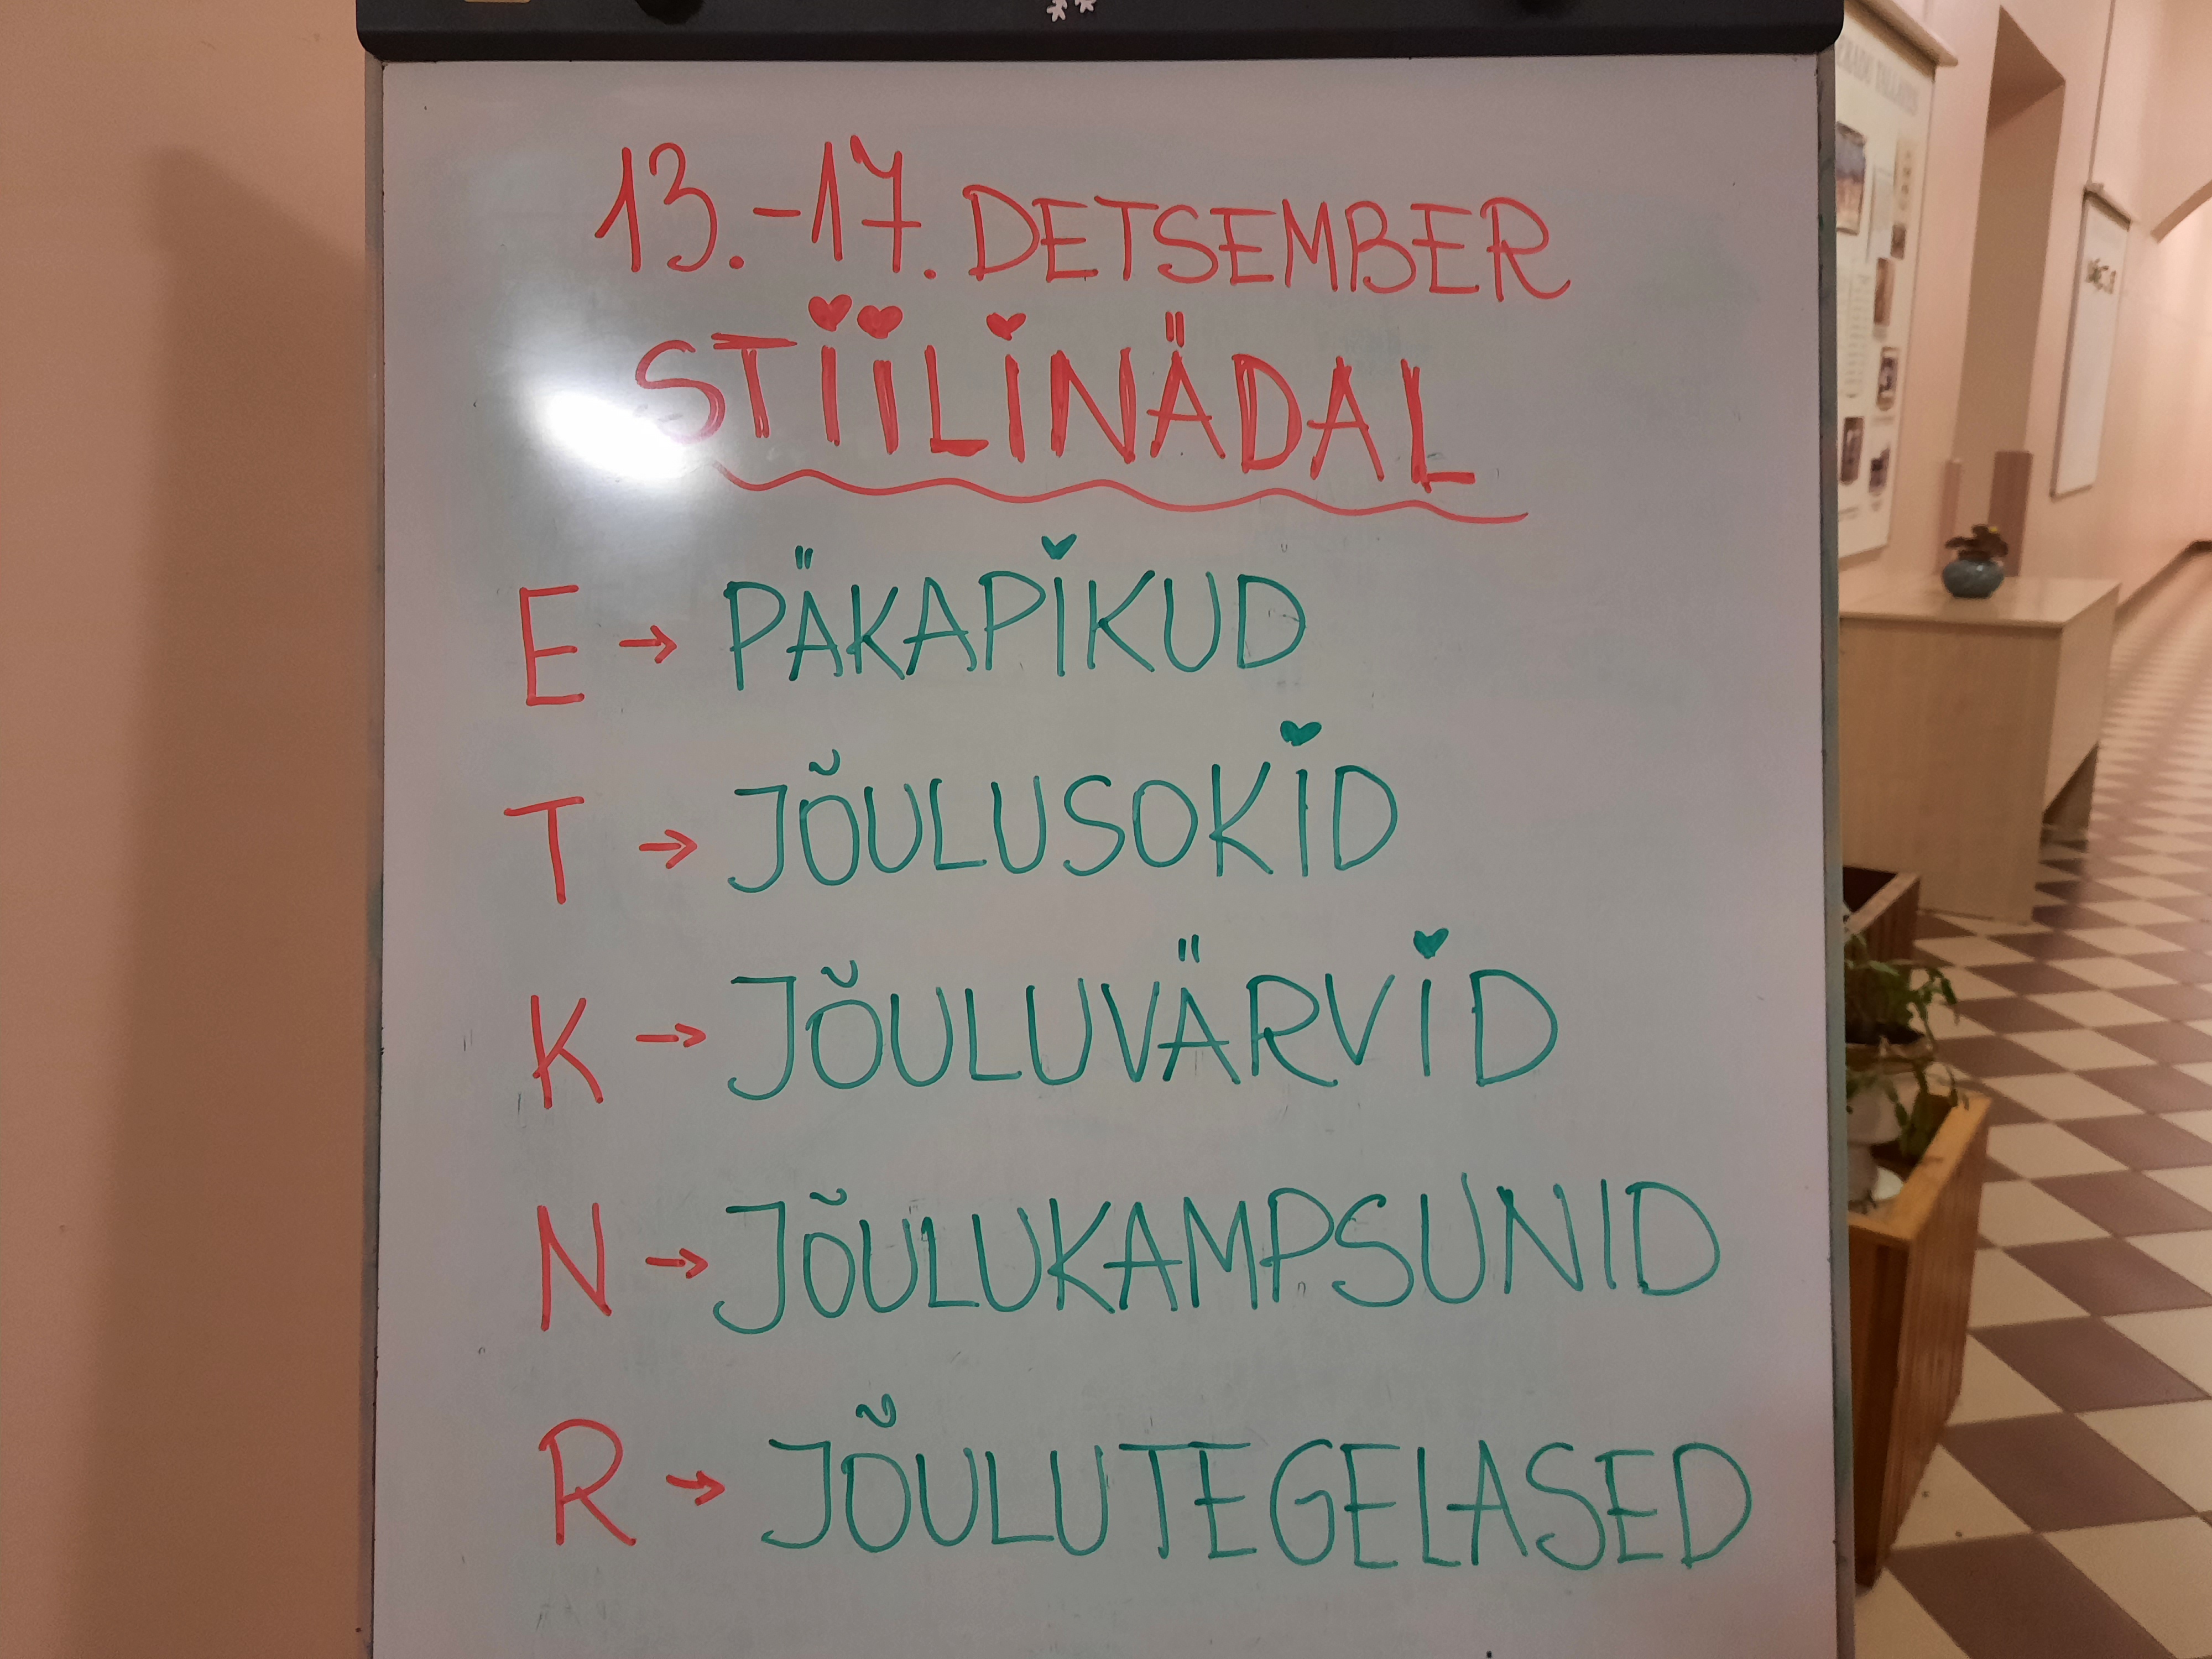 13.-17. DETSEMBER
STIILINÄDAL
E → PÄKAPIKUD
T → JÕULUSOKID
K → JÕULUVÄRVID
N → JÕULUKAMPSUNID
R → JÕULUTEGELASED